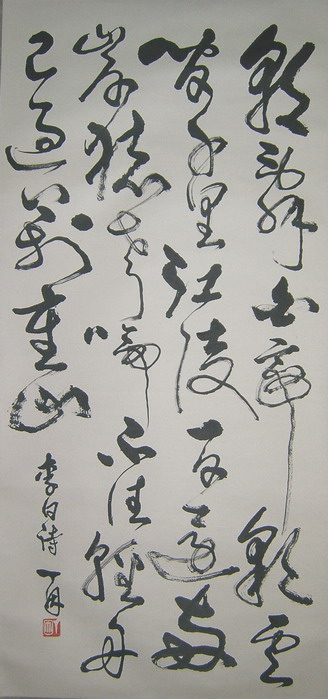 朝辭白帝彩雲
間千里江陵一日還两
岸猿声啼不住輕舟
已過萬重山
李白詩